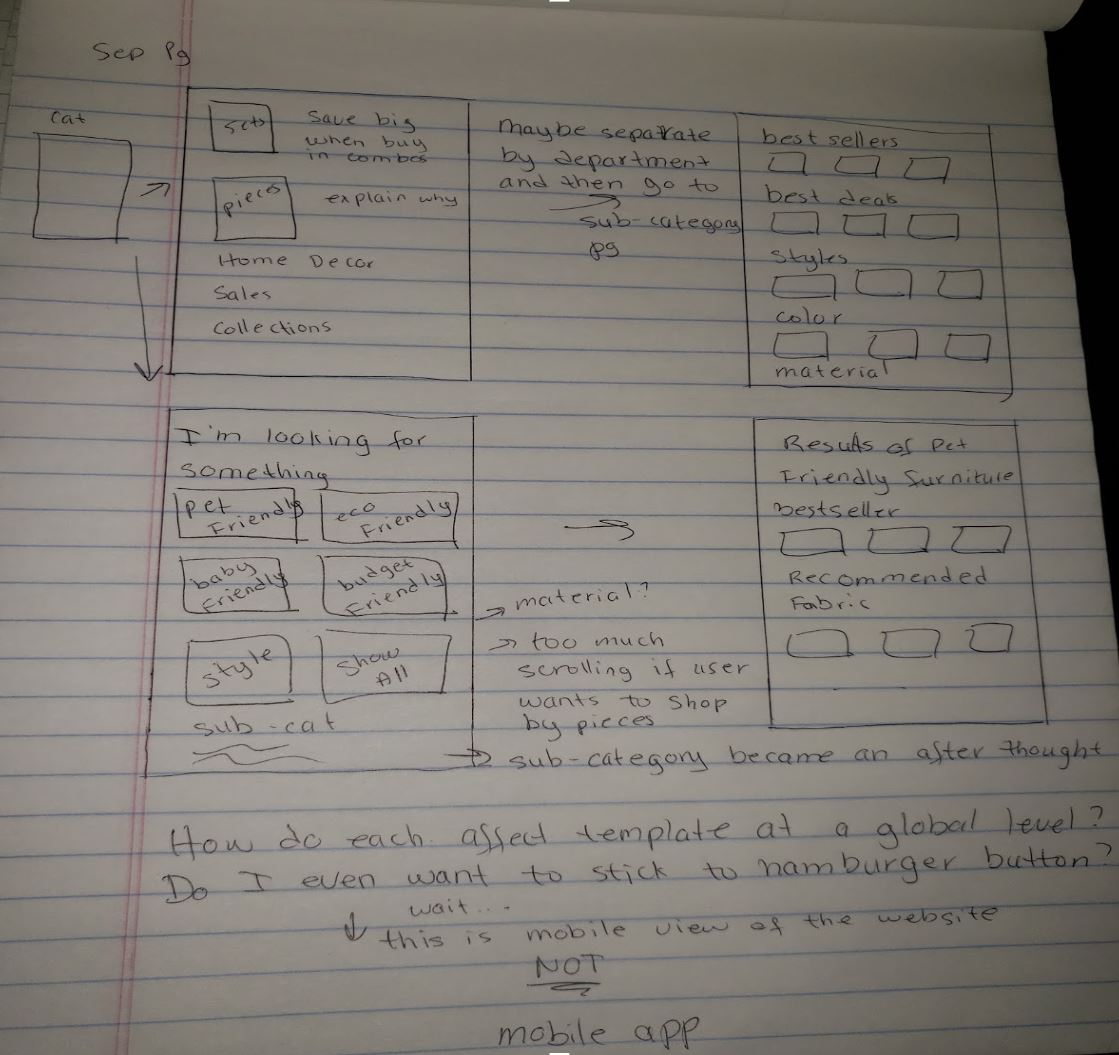 Sep Pg
Cat
sets
Save big
when buy
in combos
pieces
explain why
Home Decor
Sales
Collections
maybe separate
by department
and then go to
sub-category
pg
best sellers
best deals
Styles
color
material
I'm looking for
something
pet
Friendly
eco
Friendly
baby
Friendly
budget
Friendly
style
Show
All
sub-cat
material?
too much
scrolling if user
wants to shop
by pieces
sub-category became an after thought
Results of Pet
Friendly furniture
bestseller
Recommended
Fabric
How do each affect template at a global level?
Do I even want to stick to hamburger button?
wait...
this is mobile view of the website
NOT
mobile app